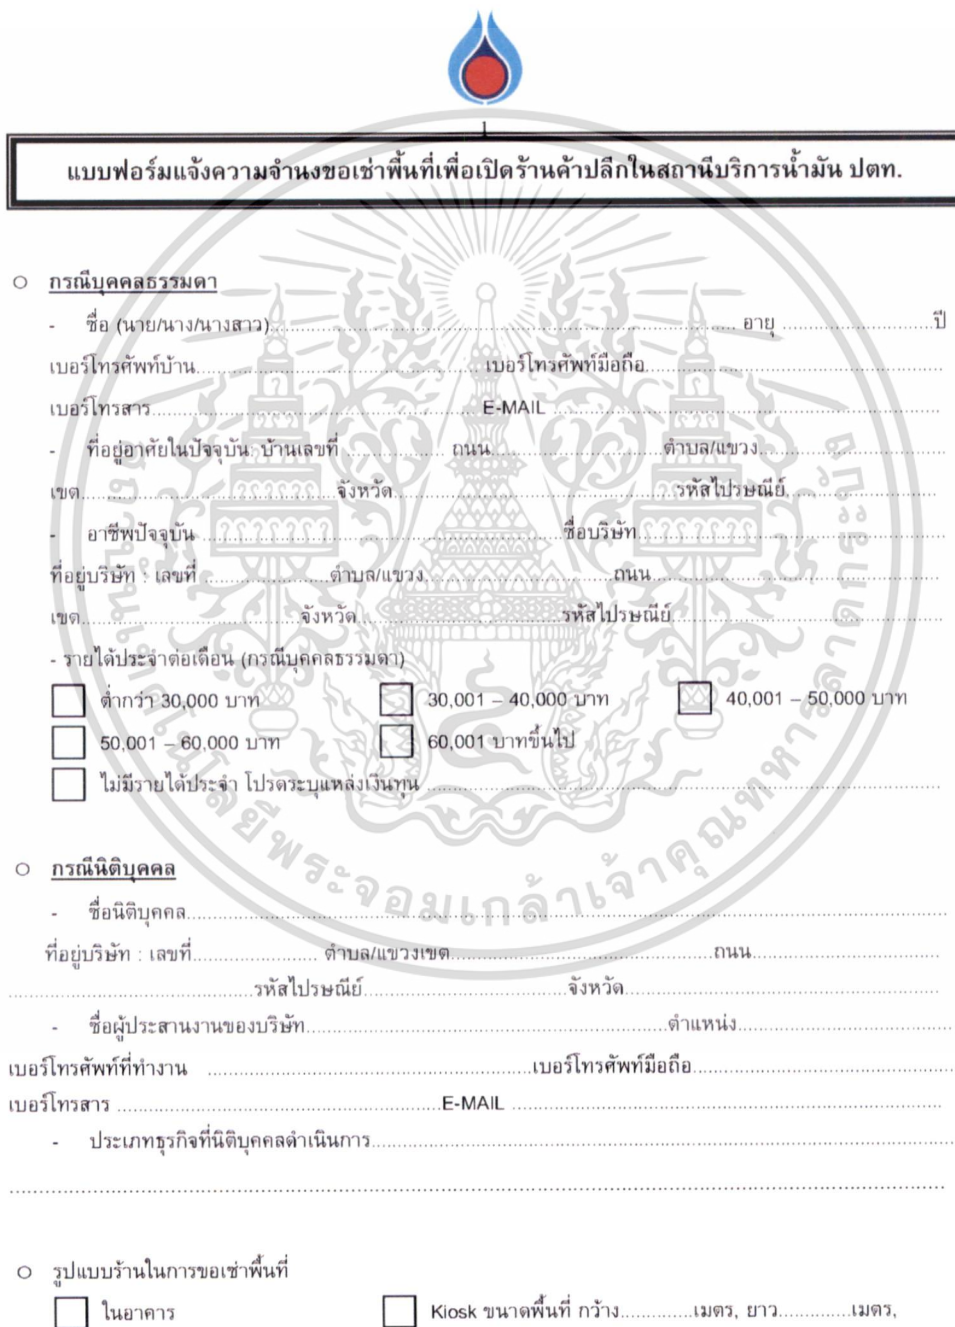 1
แบบฟอร์มแจ้งความจำนงขอเช่าพื้นที่เพื่อเปิดร้านค้าปลีกในสถานีบริการน้ำมัน ปตท.
○ กรณีบุคคลธรรมดา
- ชื่อ (นาย/นาง/นางสาว)........................ อายุ ....................ปี
เบอร์โทรศัพท์บ้าน........................เบอร์โทรศัพท์มือถือ........................
เบอร์โทรสาร........................E-MAIL ........................
- ที่อยู่อาศัยในปัจจุบัน: บ้านเลขที่ .................. ถนน........................ตำบล/แขวง........................
เขต........................จังหวัด........................รหัสไปรษณีย์........................
- อาชีพปัจจุบัน ........................ชื่อบริษัท........................
ที่อยู่บริษัท : เลขที่ ........................ตำบล/แขวง........................ถนน........................
เขต........................จังหวัด........................รหัสไปรษณีย์........................
- รายได้ประจำต่อเดือน (กรณีบุคคลธรรมดา)
ต่ำกว่า 30,000 บาท 30,001 – 40,000 บาท 40,001 – 50,000 บาท
50,001 – 60,000 บาท 60,001 บาทขึ้นไป
ไม่มีรายได้ประจำ โปรดระบุแหล่งเงินทุน ........................
○ กรณีนิติบุคคล
- ชื่อนิติบุคคล........................
ที่อยู่บริษัท : เลขที่........................ ตำบล/แขวงเขต........................ถนน........................
........................รหัสไปรษณีย์........................จังหวัด........................
- ชื่อผู้ประสานงานของบริษัท........................ตำแหน่ง........................
เบอร์โทรศัพท์ที่ทำงาน ........................เบอร์โทรศัพท์มือถือ........................
เบอร์โทรสาร ........................E-MAIL ........................
- ประเภทธุรกิจที่นิติบุคคลดำเนินการ........................
........................
○ รูปแบบร้านในการขอเช่าพื้นที่
ในอาคาร Kiosk ขนาดพื้นที่ กว้าง.............เมตร, ยาว.............เมตร,
พระจอมเกล้าเจ้าคุณทหารลาดกระบัง